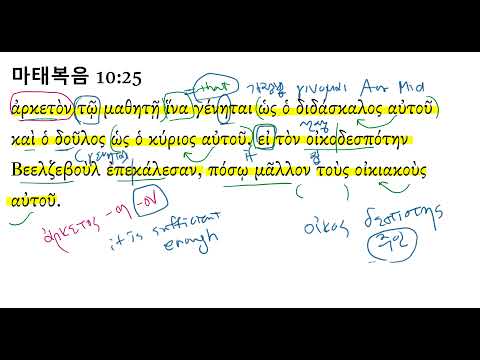 마태복음 10:25
that 가정법 γινομαι Aor Mid
ἀρκετὸν τῷ μαθητῇ ἵνα γένηται ὡς ὁ διδάσκαλος αὐτοῦ
καὶ ὁ δοῦλος ὡς ὁ κύριος αὐτοῦ. εἰ τὸν οἰκοδεσπότην
if
Βεελζεβοὺλ ἐπεκάλεσαν, πόσῳ μᾶλλον τοὺς οἰκιακοὺς
αὐτοῦ.
ἀρκετος -η -ον
it is sufficient
enough
οἶκος
주인